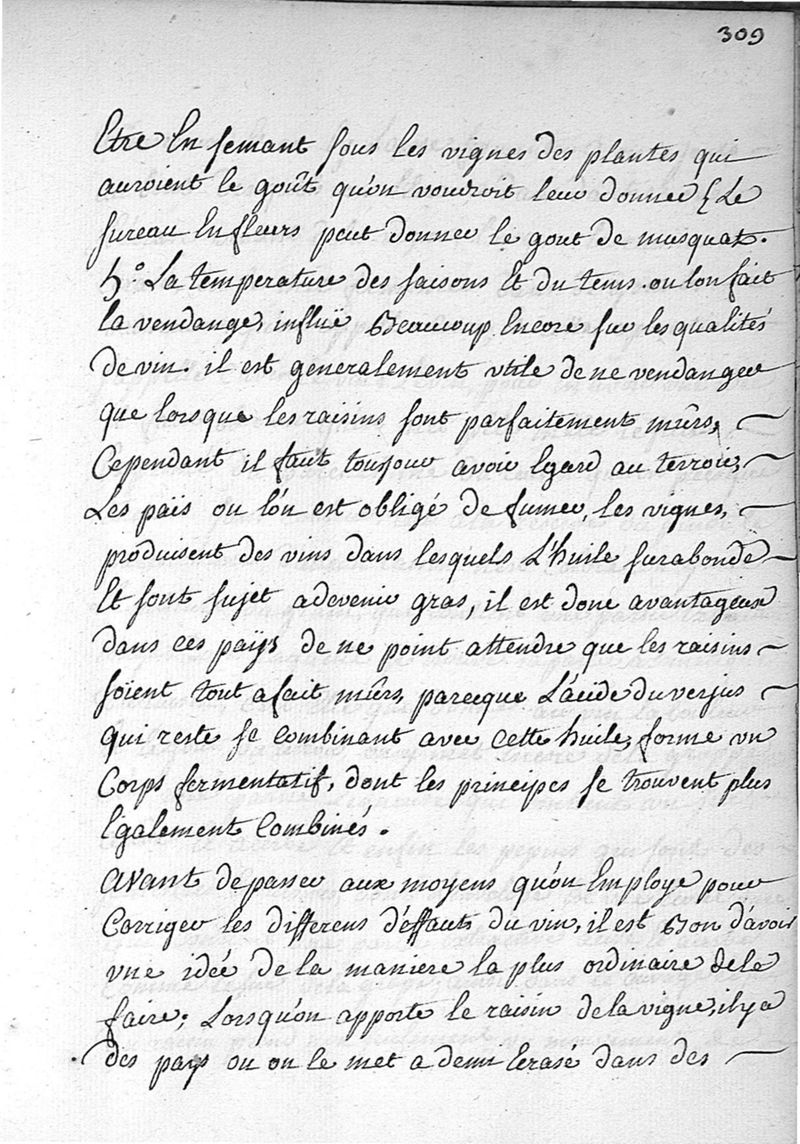 309
Etre En semant sous les vignes des plantes qui
auroient le goût qu'on voudroit leur donner { Le
sureau En fleurs peut donner le gout de musquat.
5.° La temperature des saisons Et du tems. ou lon fait
la vendange, influë Beaucoup Encore sur les qualités
de vin. il est generalement utile de ne vendanger
que lorsque les raisins sont parfaitement mûrs,
Cependant il faut toujour avoir Egard au terroir,
Les païs ou l'on est obligé de fumer, les vignes,
produisent des vins dans lesquels L'huile surabonde
Et sont sujet a devenir gras, il est donc avantageux
dans ces païs de ne point attendre que les raisins
soïent tout a fait mûrs, parceque L'acide du verjus
qui reste se Combinant avec Cette huile, forme un
Corps fermentatif, dont les principes se trouvent plus
Egalement Combinés.
avant de passer aux moyens qu'on Employe pour
Corriger les differens deffauts du vin, il est Bon d'avoir
une idée de la maniere la plus ordinaire de le
faire; Lorsqu'on apporte le raisin de la vigne, il y a
des pays ou on le met a demi Ecrasé dans des